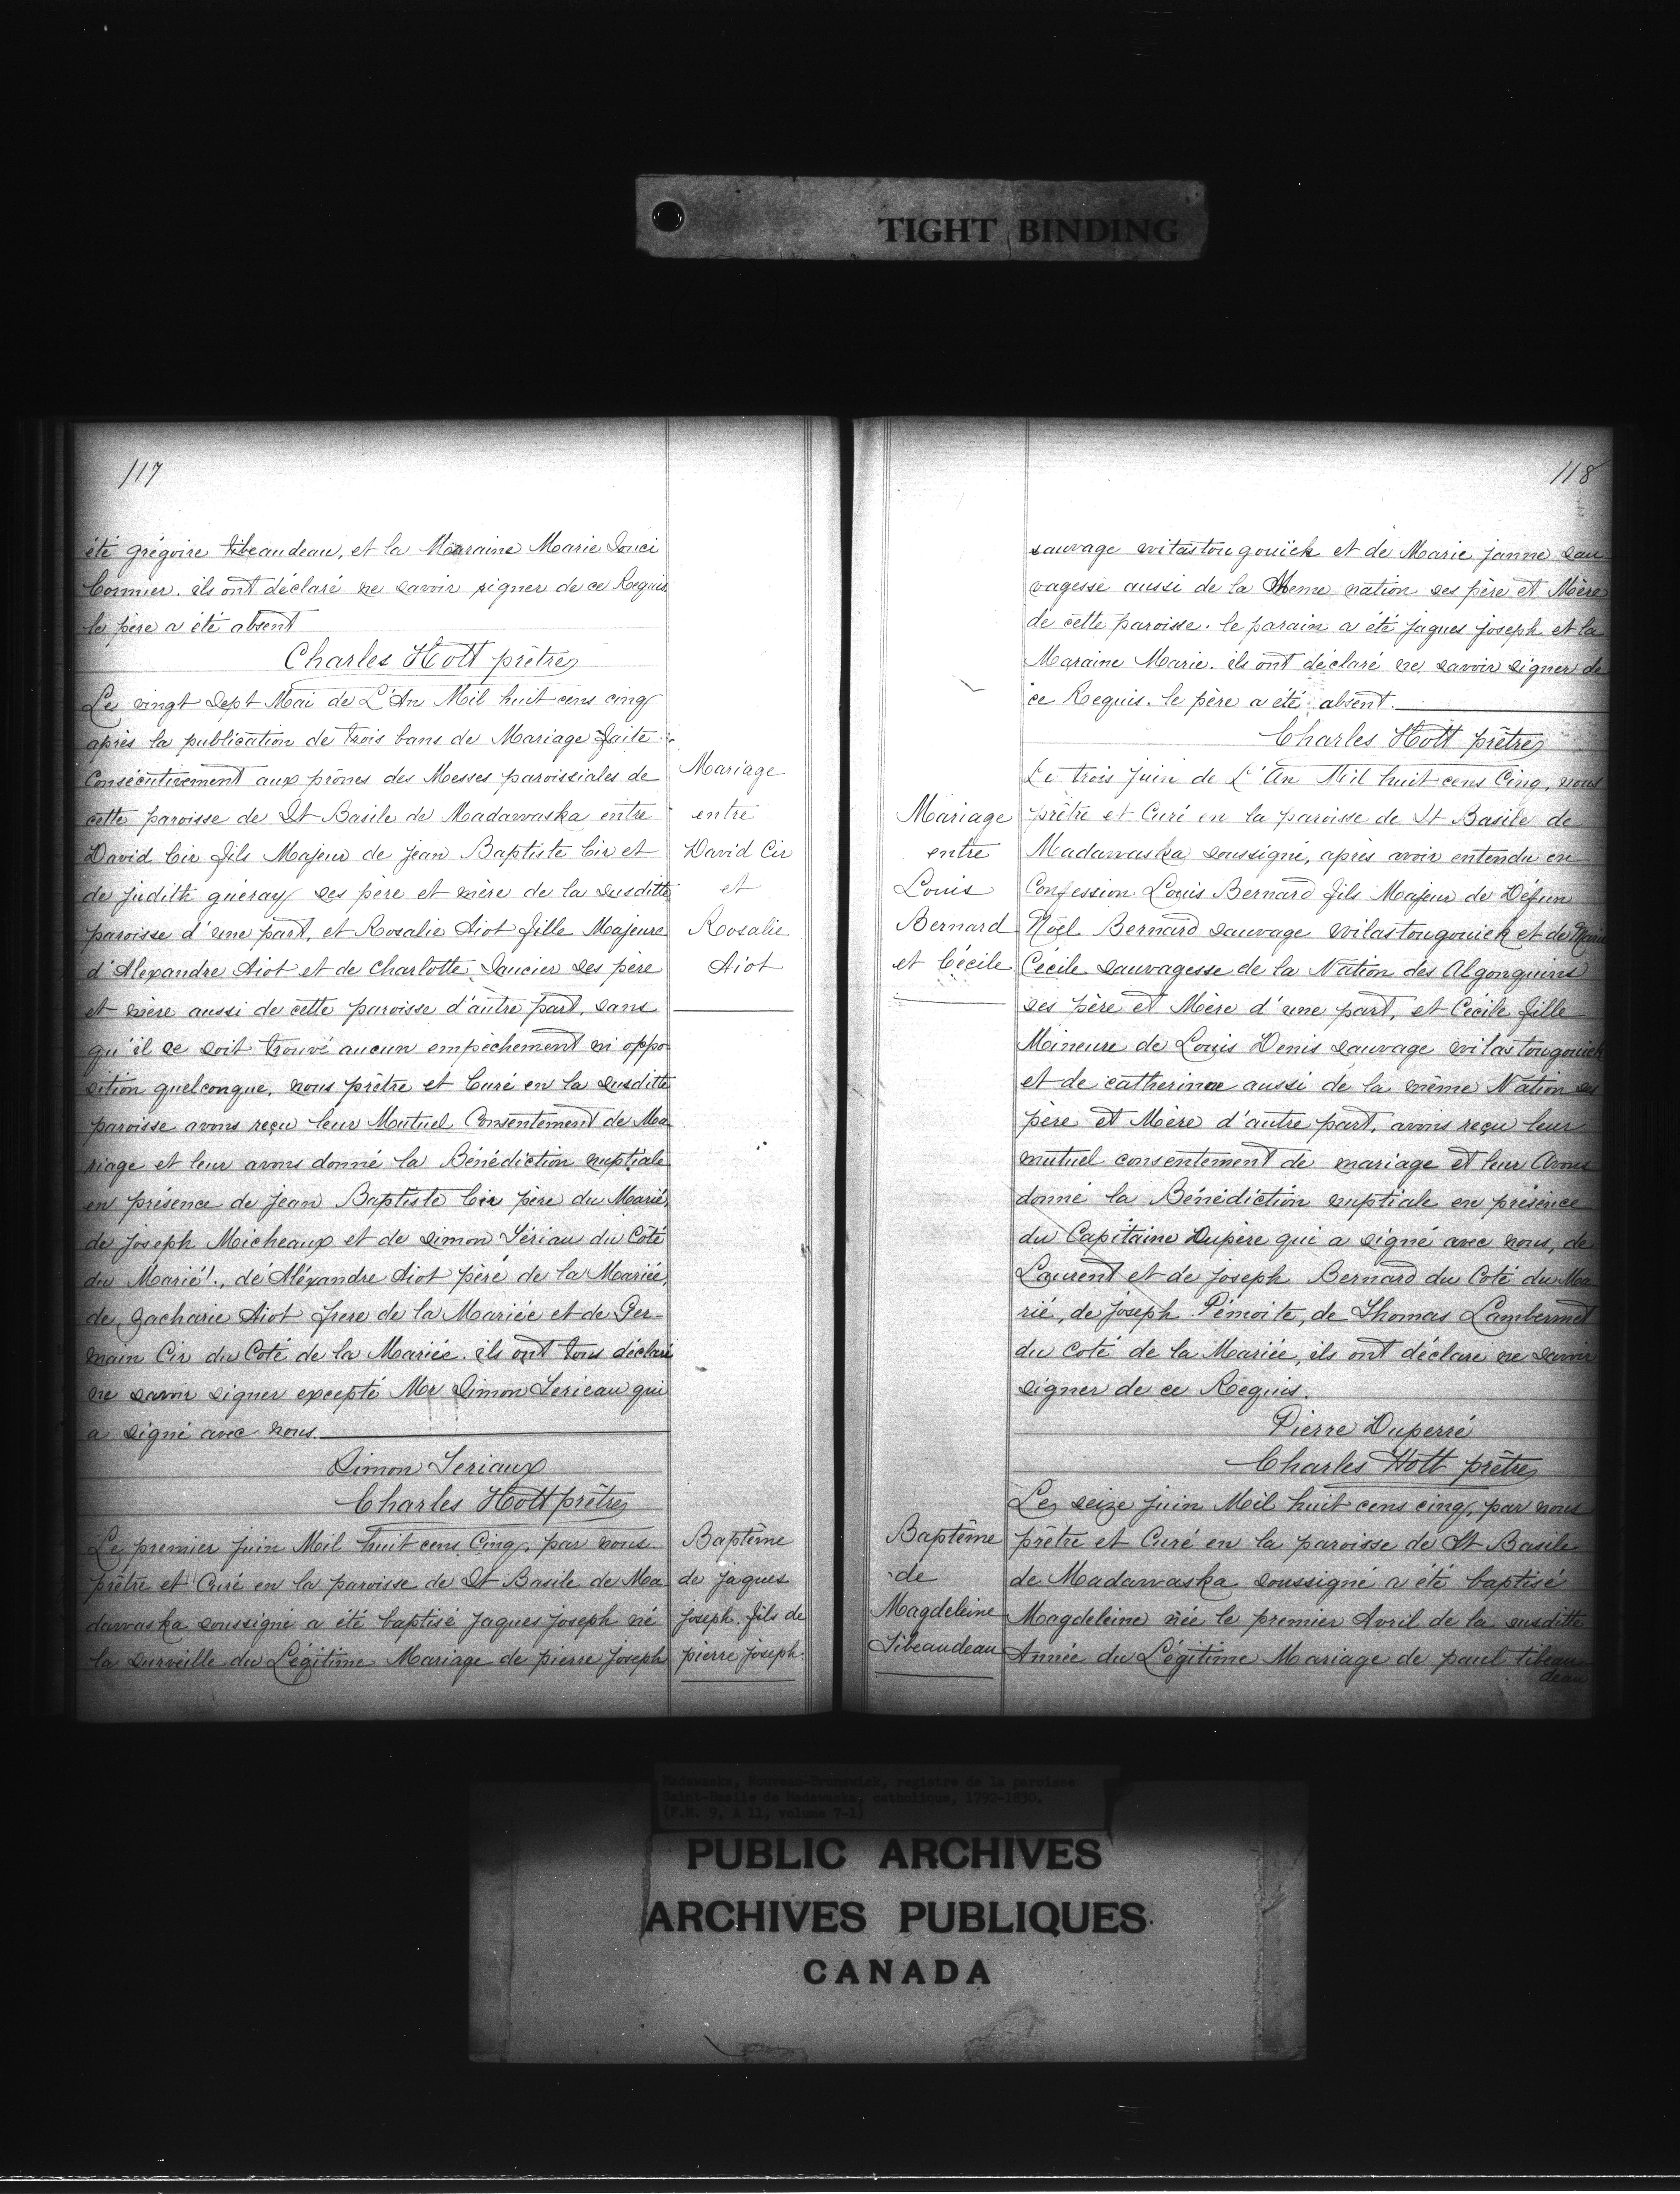 TIGHT BINDING
117
été grégoire tibeaudeau, et la Maraine Marie Souci
Cormier. ils ont déclaré ne savoir signer de ce Requis
le père a été absent
Charles Hott prêtre
Le vingt sept Mai de L'An Mil huit cens cinq
après la publication de trois bans de Mariage faite
Consécutivement aux prônes des Messes paroissiales de
cette paroisse de St Basile de Madawaska entre
David Cir fils Majeur de jean Baptiste Cir et
de judith guéray ses père et mère de la susditte
paroisse d'une part, et Rosalie Aiot fille Majeure
d'Alexandre Aiot et de Charlotte Saucier ses père
et mère aussi de cette paroisse d'autre part, sans
qu'il se soit trouvé aucun empêchement ni oppo
sition quelconque, nous prêtre et Curé en la susditte
paroisse avons reçu leur Mutuel Consentement de Ma
riage et leur avons donné la Bénédiction nuptiale
en présence de jean Baptiste Cir père du Marié,
de joseph Micheaux et de simon Tériau du Côté
du Marié!, de Aléxandre Aiot père de la Mariée,
de Zacharie Aiot frere de la Mariée et de Ger-
main Cir du Coté de la Mariée. ils ont tous déclaré
ne savoir signer excepté Mr Simon Terieau qui
a signé avec nous.
Simon Teriaux
Charles Hott prêtre
Le premier juin Mil huit cens Cinq, par nous
prêtre et Curé en la paroisse de St Basile de Ma
dawaska soussigné a été baptisé Jaques joseph né
la surveille du Légitime Mariage de pierre joseph
Mariage
entre
David Cir
et
Rosalie
Aiot
Baptême
de jaques
joseph. fils de
pierre joseph.
118
sauvage witastougouick et de Marie janne sau
vagesse aussi de la Meme nation ses père et Mère
de cette paroisse. le parain a été jaques joseph et la
Maraine Marie. ils ont déclaré ne savoir signer de
ce Requis. le père a été absent.
Charles Hott prêtre
Le trois juin de L'An Mil huit cens Cinq, nous
prêtre et Curé en la paroisse de St Basile de
Madawaska soussigné, après avoir entendu en
Confession Louis Bernard fils Majeur de Défun
Nöel Bernard sauvage wilastougouick et de Marie
Cécile sauvagesse de la Nation des Algonquins
ses père et Mère d'une part, et Cécile fille
Mineure de Louis Denis sauvage wilastougouick
et de catherine aussi de la même Nation ses
père et Mère d'autre part, avons reçu leur
mutuel consentement de mariage et leur Avons
donné la Bénédiction nuptiale en présence
du Capitaine Dupère qui a signé avec nous, de
Laurent et de joseph Bernard du Coté du Ma
rié, de joseph Pémoite, de Thomas Lambermet
du coté de la Mariée, ils ont déclaré ne savoir
signer de ce Requis.
Pierre Duperré
Charles Hott prêtre
Le seize juin Mil huit cens cinq, par nous
prêtre et Curé en la paroisse de St Basile
de Madawaska soussigné a été baptisé
Magdeleine née le premier Avril de la susditte
Année du Légitime Mariage de paul tibeau
deau
Mariage
entre
Louis
Bernard
et Cécile
Baptême
de
Magdeleine
Tibeaudeau
Madawaska, Nouveau-Brunswick, registre de la paroisse
Saint-Basile de Madawaska, catholique, 1792-1830.
(F.M. 9, A 11, volume 7-1)
PUBLIC ARCHIVES
ARCHIVES PUBLIQUES
CANADA